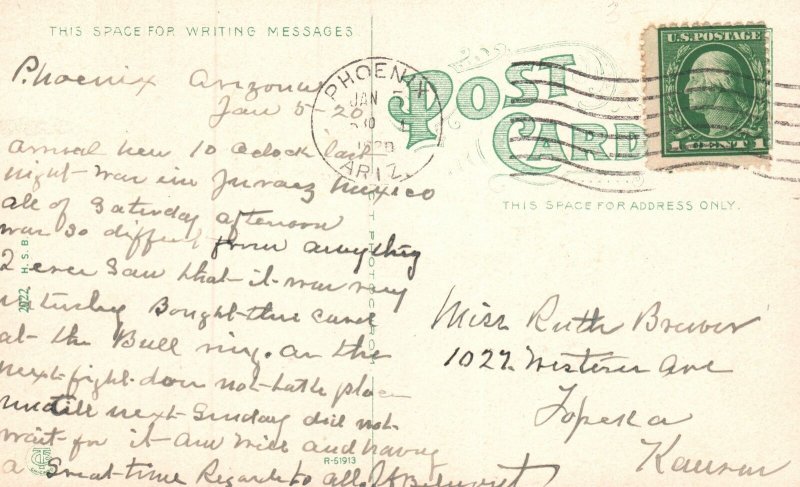 THIS SPACE FOR WRITING MESSAGES
Phoenix Arizona
Jan 5-20
arrived here 10 oclock last
night - was in Juraez Mexico
all of Saturday afternoon
was so different from anything
I ever saw that - it - was very
Bought - this card
at - the Bull ring. as the
next - fight - dose not - take place
untill next - Sunday did not -
wait - for it am well and having
a Great - time Regards to all.
2022 H.S.B.
R-51913
POST CARD
THIS SPACE FOR ADDRESS ONLY.
PHOENIX
JAN 5
1920
ARIZ.
U.S. POSTAGE
1 CENT 1
Miss Ruth Brewer
1027. Western Ave
Topeka
Kansas